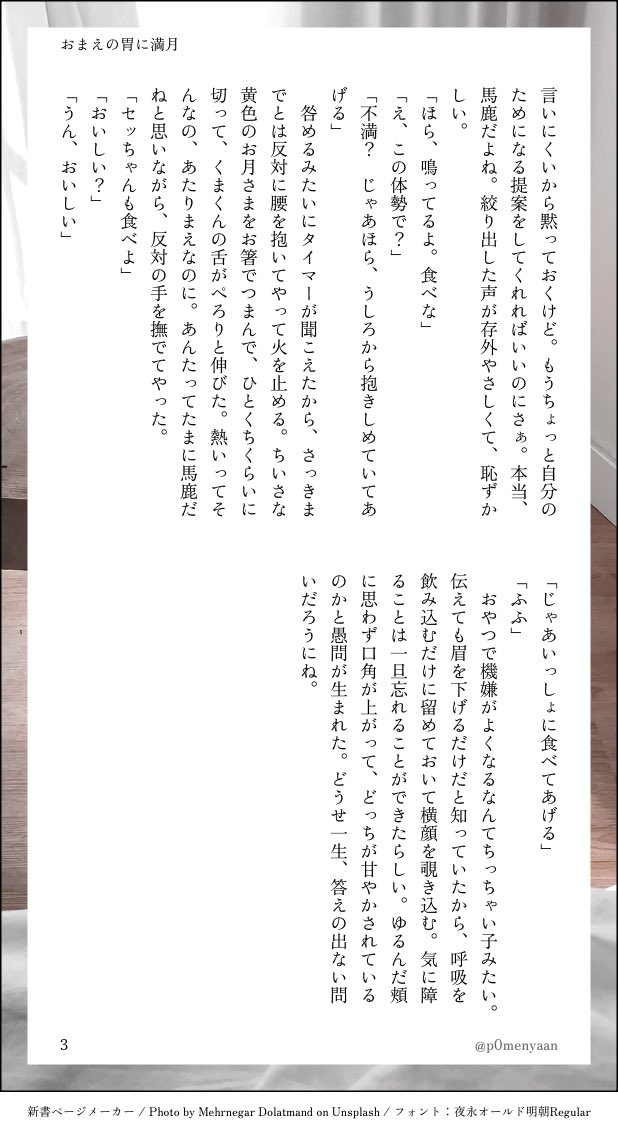 おまえの胃に満月
言いにくいから黙っておくけど。もうちょっと自分の
ためになる提案をしてくれればいいのにさぁ。本当、
馬鹿だよね。絞り出した声が存外やさしくて、恥ずか
しい。
「ほら、鳴ってるよ。食べな」
「え、この体勢で？」
「不満？　じゃあほら、うしろから抱きしめていてあ
げる」
　咎めるみたいにタイマーが聞こえたから、さっきま
でとは反対に腰を抱いてやって火を止める。ちいさな
黄色のお月さまをお箸でつまんで、ひとくちくらいに
切って、くまくんの舌がぺろりと伸びた。熱いってそ
んなの、あたりまえなのに。あんたってたまに馬鹿だ
ねと思いながら、反対の手を撫でてやった。
「セッちゃんも食べよ」
「おいしい？」
「うん、おいしい」
「じゃあいっしょに食べてあげる」
「ふふ」
　おやつで機嫌がよくなるなんてちっちゃい子みたい。
伝えても眉を下げるだけだと知っていたから、呼吸を
飲み込むだけに留めておいて横顔を覗き込む。気に障
ることは一旦忘れることができたらしい。ゆるんだ頬
に思わず口角が上がって、どっちが甘やかされている
のかと愚問が生まれた。どうせ一生、答えの出ない問
いだろうにね。
3
@p0menyaan
新書ページメーカー / Photo by Mehrnegar Dolatmand on Unsplash / フォント：夜永オールド明朝Regular